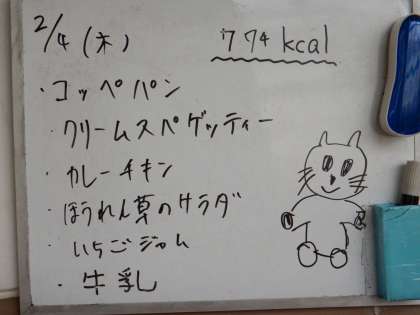 2/4 (木)
774 kcal
・コッペパン
・クリームスペゲッティー
・カレーチキン
・ほうれん草のサラダ
・いちごジャム
・牛乳